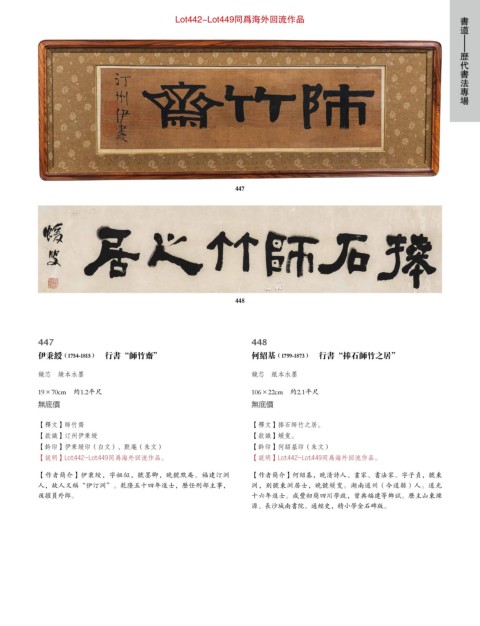 Lot442-Lot449同爲海外回流作品
書道——歷代書法專場
師竹齋
汀州伊秉綬
447
捧石師竹之居
蝯叟
448
447
伊秉綬（1754-1815） 行書“師竹齋”
鏡芯 綾本水墨
19×70cm 約1.2平尺
無底價
【釋文】師竹齋
【款識】汀州伊秉綬
【鈐印】伊秉綬印（白文）、默庵（朱文）
【說明】Lot442-Lot449同爲海外回流作品。
【作者簡介】伊秉綬，字組似，號墨卿，晚號默庵。福建汀洲
人，故人又稱“伊汀洲”。乾隆五十四年進士，歷任刑部主事，
後擢員外郎。
448
何紹基（1799-1873） 行書“捧石師竹之居”
鏡芯 紙本水墨
106×22cm 約2.1平尺
無底價
【釋文】捧石師竹之居。
【款識】蝯叟。
【鈐印】何紹基印（朱文）
【說明】Lot442-Lot449同爲海外回流作品。
【作者簡介】何紹基，晚清詩人、畫家、書法家。字子貞，號東
洲，別號東洲居士，晚號蝯叟。湖南道州（今道縣）人。道光
十六年進士。咸豐初簡四川學政，曾典福建等鄉試。歷主山東濼
源、長沙城南書院。通經史，精小學金石碑版。